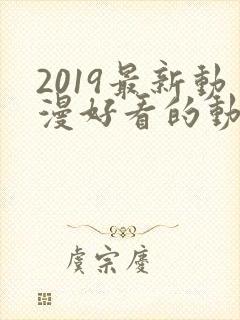 2019最新動
漫好看的動
虞宗慶